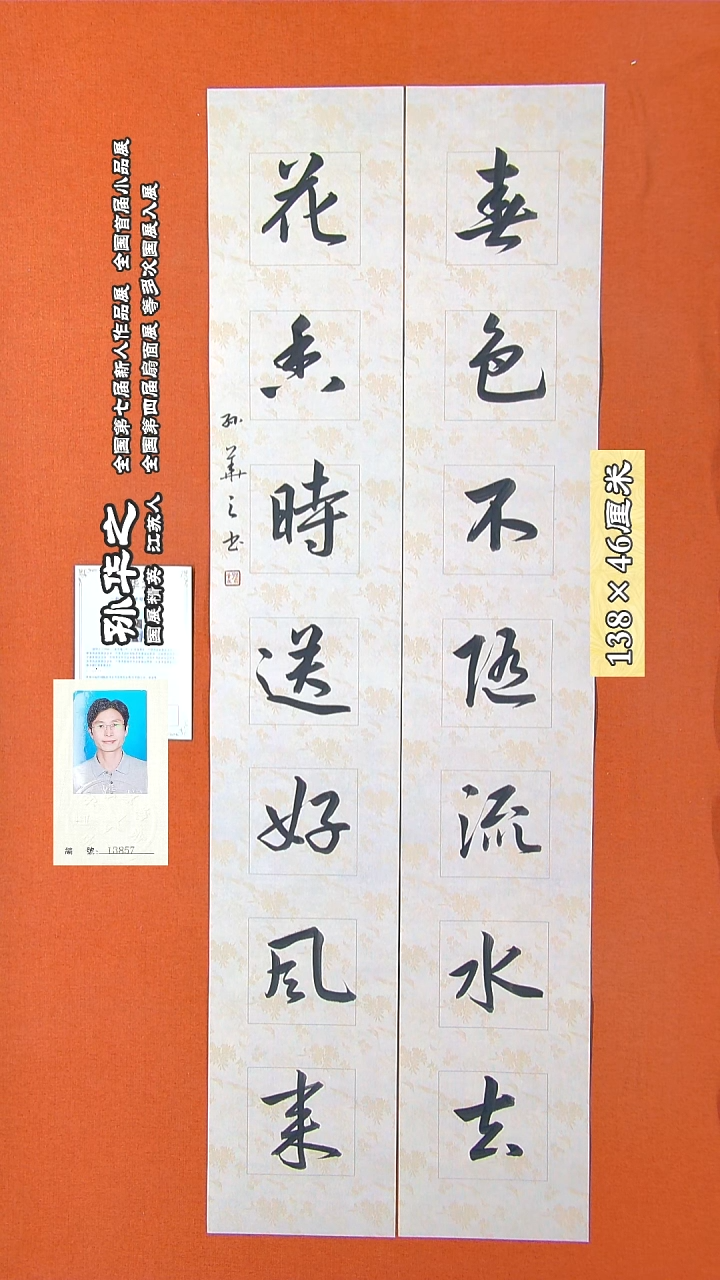 春色不随流水去
花香時送好风来
孙華之书
138×46厘米
孙华之
国展精英 江苏人
全国第七届新人作品展 全国首届小品展
全国第四届扇面展 等多次国展入展
编 號: 13857